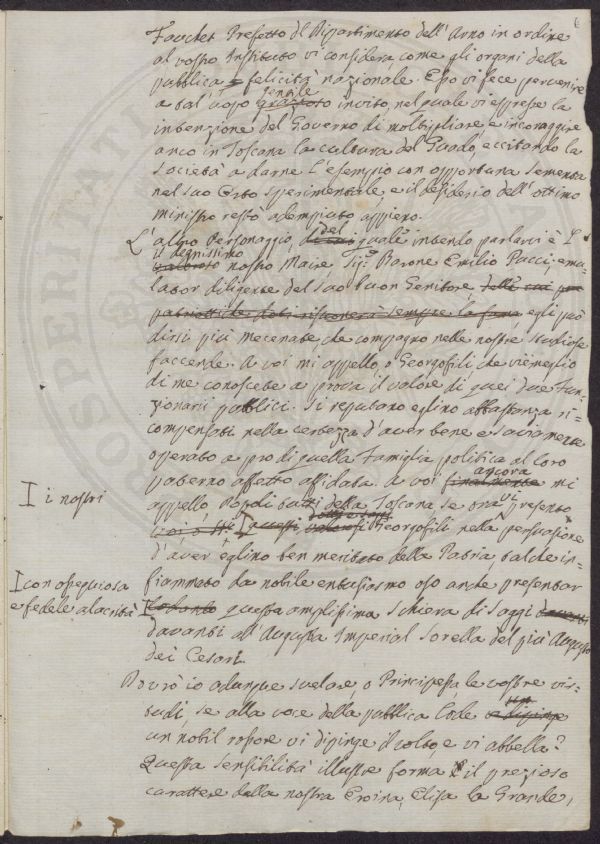 6
Fauchet Prefetto del Dipartimento dell'Arno in ordine
al vostro Instituto vi considera come gli organi della
pubblica e felicità nazionale. Esso vi fece pervenire
gentile
a tal uopo grazioso invito, nel quale vi espresse la
intenzione del Governo di moltiplicare e incoraggire
anco in Toscana la cultura del Guado, eccitando la
Società a darne l'esempio con opportuna sementa
nel suo Orto sperimentale, e il desiderio dell'ottimo
ministro restò adempiuto appieno.
del
L'altro Personaggio, di cui quale intendo parlarvi è
il degnissimo
valoroso nostro Maire Sig.r Barone Emilio Pucci, emu-
lator diligente del suo buon Genitore delle cui pre
egli può
dirsi più mecenate che compagno nelle nostre studiose
faccende. A voi mi appello, o Georgofili, che vie meglio
di me conoscete a prova il valore di quei due Fun-
zionarii pubblici. Si reputano eglino abbastanza ri-
compensati nella certezza d'aver bene e saviamente
operato a pro di quella Famiglia politica al loro
paterno affetto affidata. A voi finalmente mi
ancora
appello, Popoli tutti della Toscana, se ora vi presento
I i nostri
questi valorosi Georgofili, nella persuasione
d'aver eglino ben meritato della Patria, talché in-
fiammato da nobile entusiasmo oso anche presentar
I con ossequiosa
e fedele alacrità
questa amplissima schiera di saggi davanti
davanti all'Augusta Imperial Sorella del più Augusto
dei Cesari.
Dovrò io adunque svelare, o Principessa le vostre vir-
tudi, se alla voce della pubblica lode
un
un nobil rossore vi dipinge il volto, e vi abbella?
Questa sensibilità illustre forma il prezioso
carattere della nostra Eroina, Elisa la Grande,